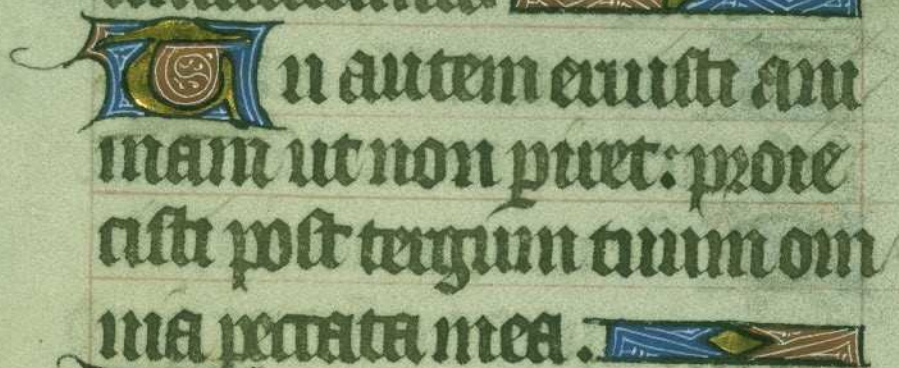 Tu autem eruisti ani
mam ut non ꝑiret: proie
cisti post tergum tuum om
nia peccata mea.